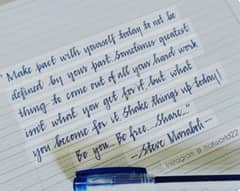 "Make pact with yourself today to not be
defined by your past. Sometimes greatest
thing to come out of all your hard work
isn't what you get for it, but what
you become for it. Shake things up today!
Be you... Be free... Share..."
- Steve Maraboli -